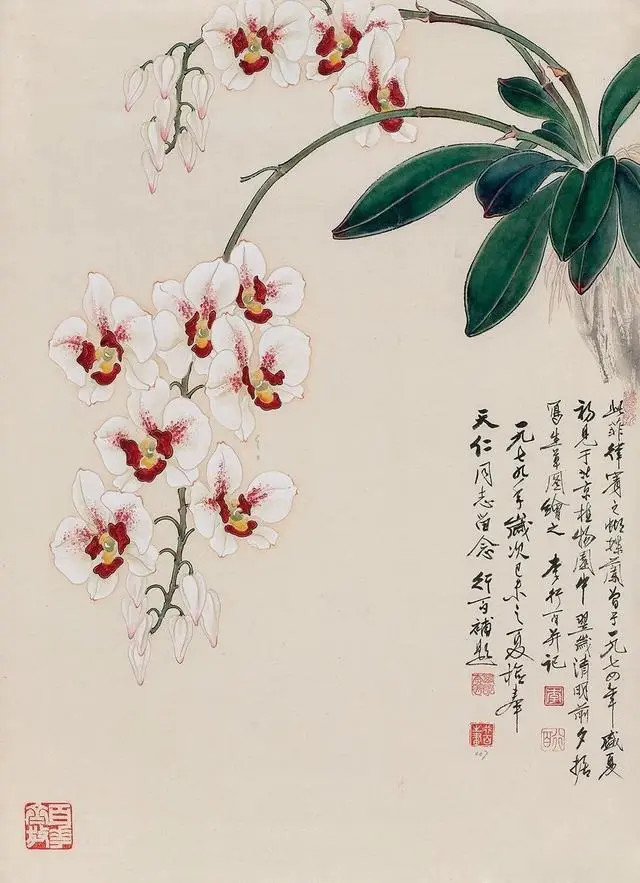 此菲律賓之蝴蝶蘭曾于一九七四年盛夏
初見于北京植物園中翌歲清明前夕据
寫生草圖繪之 李行百并記
一九七九年歲次己未之夏檢奉
天仁同志留念 行百補題
李
行百
百花齊放